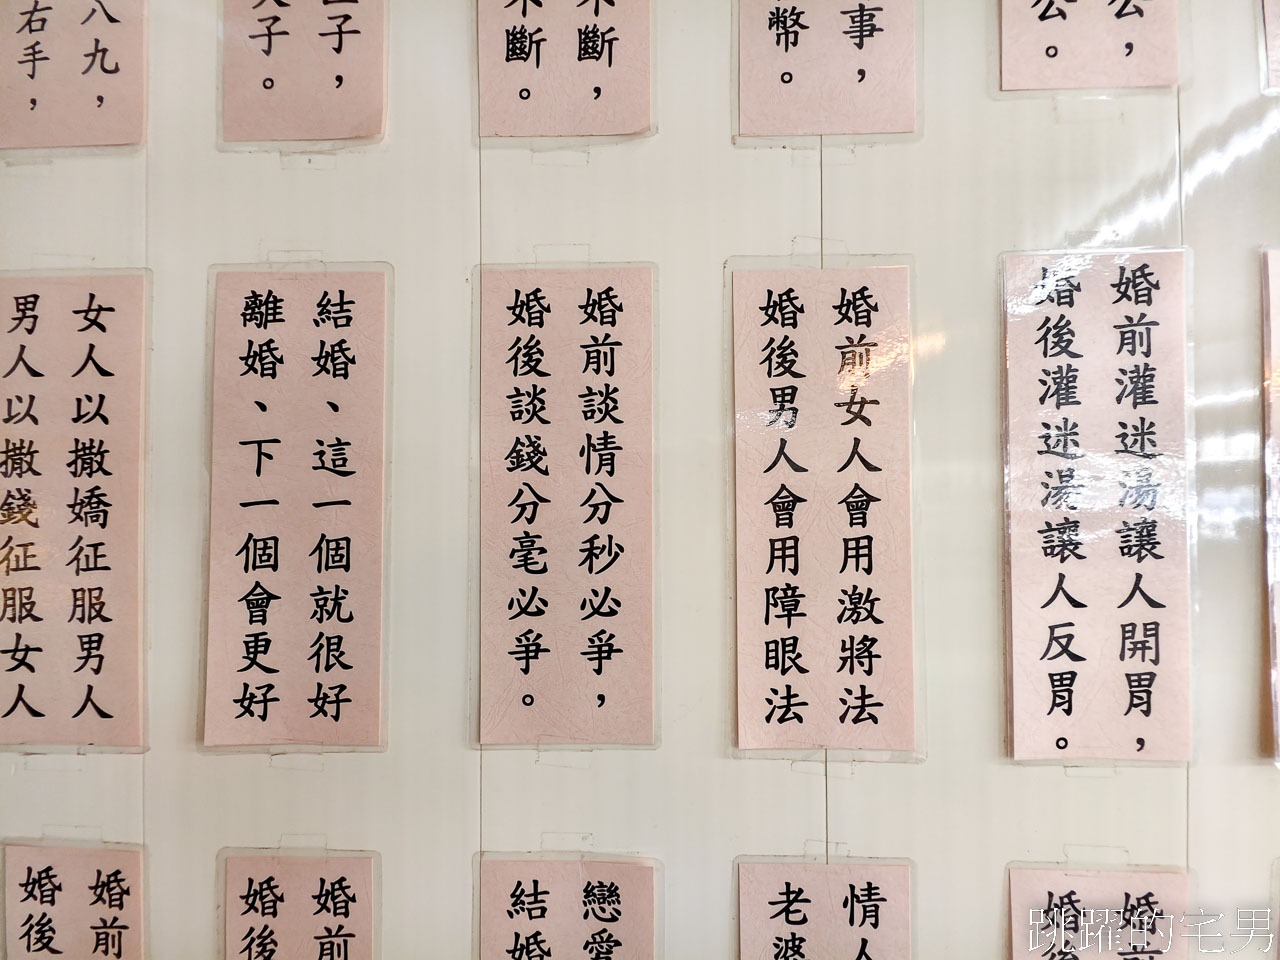 公，
公。
事，
幣。
不斷，
不斷。
子，
子。
八九，
右手，
婚前灌迷湯讓人開胃，
婚後灌迷湯讓人反胃。
婚前女人會用激將法
婚後男人會用障眼法
婚前談情分秒必爭，
婚後談錢分毫必爭。
結婚、這一個就很好
離婚、下一個會更好
女人以撒嬌征服男人
男人以撒錢征服女人
婚前
婚後
情人
老婆
戀愛
結婚
婚前
婚後
婚前
婚後
跳躍的宅男